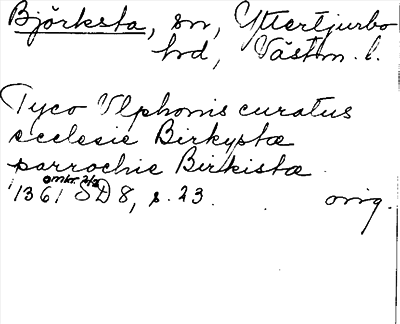 Björksta, sn, Yttertjurbo
hd, Västm. l.
Tyco Vlphonis curatus
ecclesie Birkystæ
parrochie Birkista
omkr. 2/2
1361 SD 8, s. 23. orig.